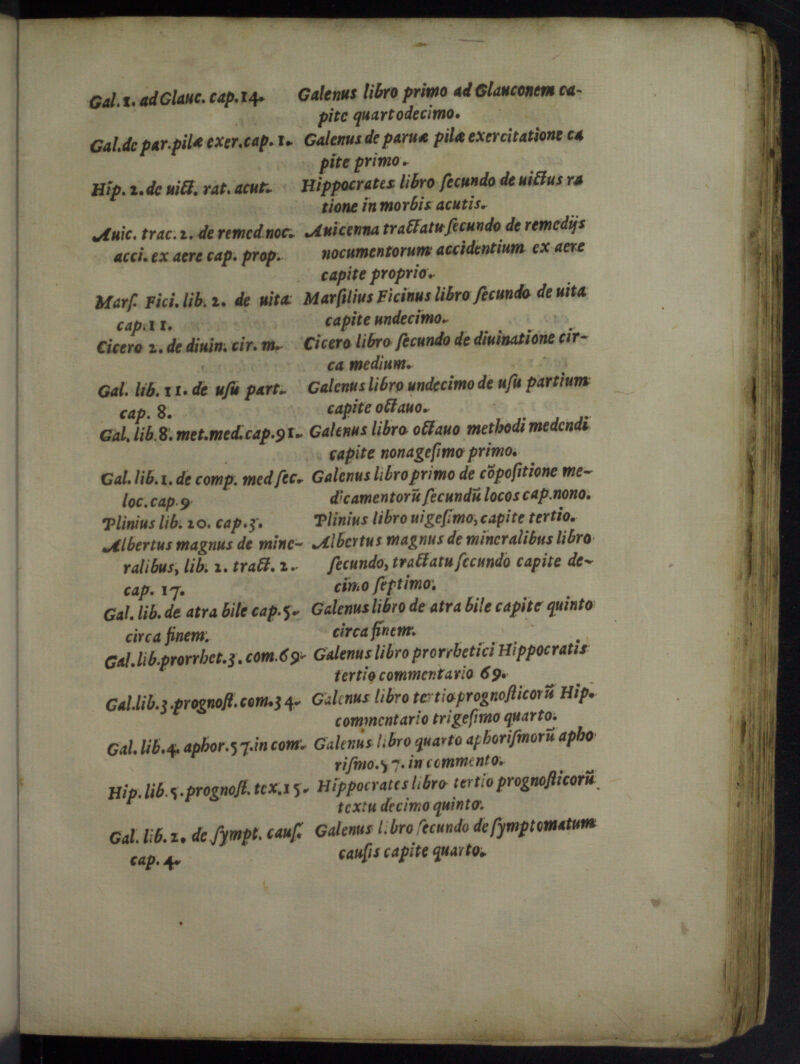 Gal. 1. ad Glauc. cap. 14. Galenus libro primo ad Glauconem ca-
pite quartodecimo.
Gal. de par. pilæ exer. cap. 1. Galenus de parua pilæ exercitatione ca
pite primo.
Hip. 2. de uict. rat. acut. Hippocrates libro secundo de uictus ra
tione in morbis acutis.
Auic. trac. 2. de remed noc. Auicenna tractatu secundo de remedijs
acci. ex aere cap. prop. nocumentorum accidentium ex aere
capite proprio.
Mars. Fici. lib. 2. de uita Marsilius Ficinus libro secundo de uita
cap. 11. capite undecimo.
Cicero 2. de diuin. cir. m. Cicero libro secundo de diuinatione cir-
ca medium.
Gal. lib. 11. de usu part. Galenus libro undecimo de usu partium
cap. 8. capite octauo.
Gal. lib. 8. met. med. cap. 91. Galenus libro octauo methodi medendi
capite nonagesimo primo.
Gal. lib. 1. de comp. med sec. Galenus libro primo de cōpositione me-
loc. cap. 9 dicamentorū secundū locos cap. nono.
Plinius lib. 20. cap. 3. Plinius libro uigesimo, capite tertio.
Albertus magnus de mine- Albertus magnus de mineralibus libro
ralibus, lib. 2. tract. 2. secundo, tractatu secundo capite de-
cap. 17. cimo septimo.
Gal. lib. de atra bile cap. 5. Galenus libro de atra bile capite quinto
circa finem. circa finem.
Gal. lib. prorrhet. 3. com. 69. Galenus libro prorrhetici Hippocratis
tertio commentario 69.
Gal. lib. 3. prognost. com. 34. Galenus libro tertio prognosticorū Hip.
commentario trigesimo quarto.
Gal. lib. 4. aphor. 57. in com. Galenus libro quarto aphorismorū apho
rismo. 57. in commento.
Hip. lib. 3. prognost. tex. 15. Hippocrates libro tertio prognosticorū
textu decimo quinto.
Gal. lib. 2. de sympt. caus. Galenus libro secundo de symptomatum
cap. 4. causis capite quarto.